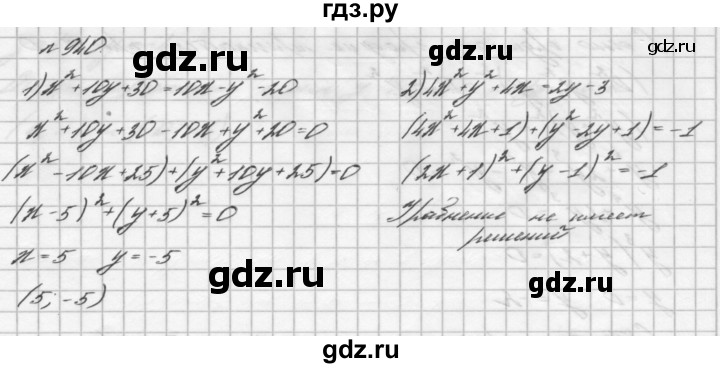 гдз.ру
№ 940.
gdz.ru
gdz.ru
1) x² + 10y + 30 = 10x - y² - 20
x² + 10y + 30 - 10x + y² + 20 = 0
gdz.ru
(x² - 10x + 25) + (y² + 10y + 25) = 0
(x - 5)² + (y + 5)² = 0
x = 5 y = -5
gdz.ru
(5; -5)
2) 4x² + y² + 4x - 2y - 3
(4x² + 4x + 1) + (y² - 2y + 1) = -1
gdz.ru
(2x + 1)² + (y - 1)² = -1
Уравнение не имеет
решений
gdz.ru
gdz.ru